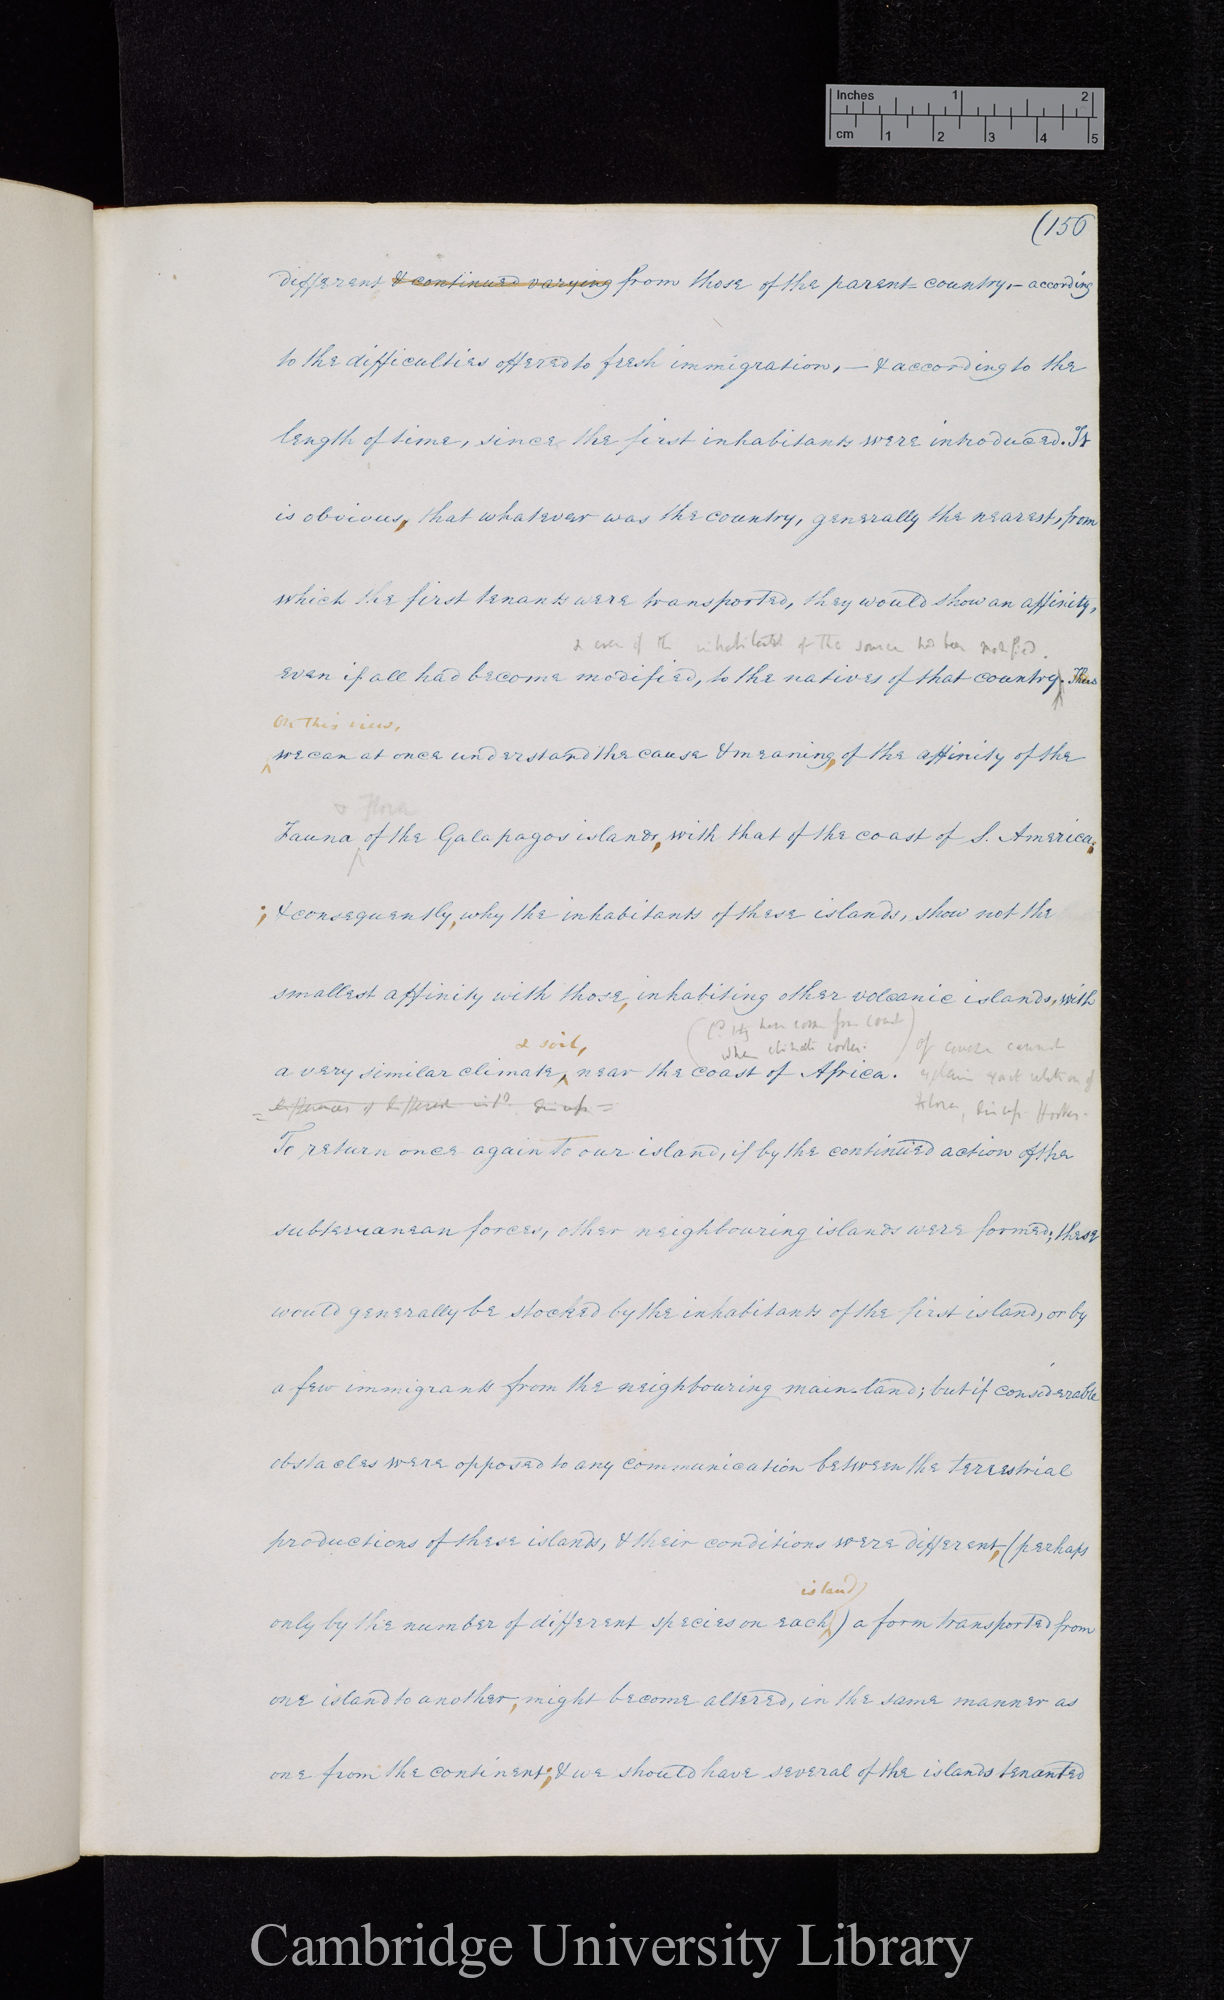 Inches 1 2
cm 1 2 3 4 5
(156
different & continued varying from those of the parent=country,— according
to the difficulties offered to fresh immigration,— & according to the
length of time, since the first inhabitants were introduced. It
is obvious, that whatever was the country, generally the nearest, from
which the first tenants were transported, they would show an affinity,
& even if the inhabitants of the source has been modified.
even if all had become modified, to the natives of that country. Thus
On this view,
we can at once understand the cause & meaning, of the affinity of the
& Flora
Fauna of the Galapagos islands, with that of the coast of S. America;
; & consequently, why the inhabitants of these islands, show not the
smallest affinity with those, inhabiting other volcanic islands, with
have come from coast
when climate cooler.
of course cannot
& soil,
a very similar climate, near the coast of Africa.
explain exact relation of
Flora, discuss Hooker.
discuss =
To return once again to our island, if by the continued action of the
subterranean forces, other neighbouring islands were formed; these
would generally be stocked by the inhabitants of the first island, or by
a few immigrants from the neighbouring main-land; but if considerable
obstacles were opposed to any communication between the terrestrial
productions of these islands, & their conditions were different, (perhaps
island)
only by the number of different species on each) a form transported from
one island to another, might become altered, in the same manner as
one from the continent; & we should have several of the islands tenanted
Cambridge University Library